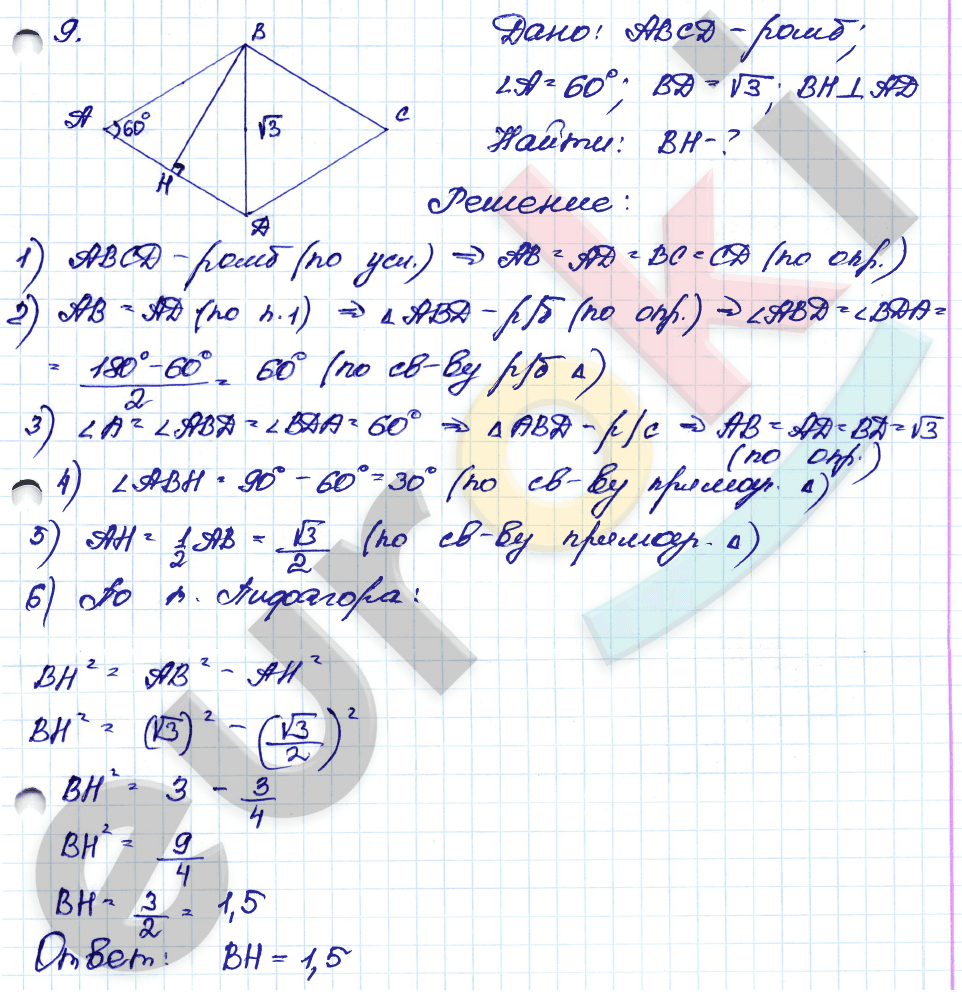 9.
B
A
60°
√3
C
H
D
Дано: ABCD - ромб;
∠A = 60°; BD = √3; BH ⊥ AD
Найти: BH - ?
Решение:
1) ABCD - ромб (по усл.) ⇒ AB = AD = BC = CD (по опр.)
2) AB = AD (по п.1) ⇒ △ABD - р/б (по опр.) ⇒ ∠ABD = ∠BDA =
= (180° - 60°)/2 = 60° (по св-ву р/б △)
3) ∠A = ∠ABD = ∠BDA = 60° ⇒ △ABD - р/с ⇒ AB = AD = BD = √3
(по опр.)
4) ∠ABH = 90° - 60° = 30° (по св-ву прямоуг. △)
5) AH = 1/2 AB = √3/2 (по св-ву прямоуг. △)
6) По т. Пифагора:
BH² = AB² - AH²
BH² = (√3)² - (√3/2)²
BH² = 3 - 3/4
BH² = 9/4
BH = 3/2 = 1,5
Ответ: BH = 1,5
euroki